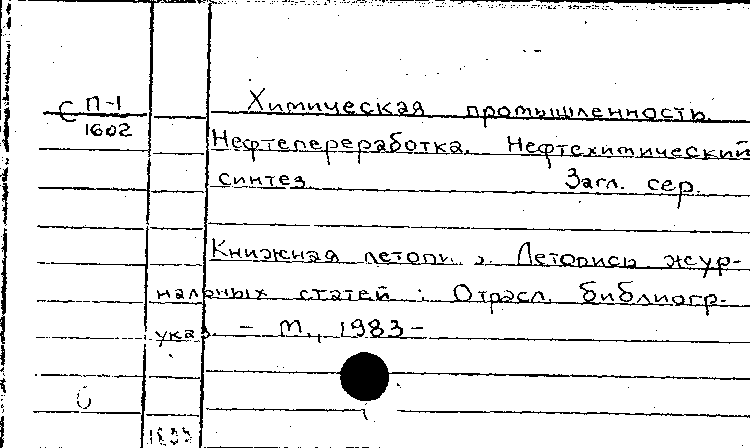 С П-1
1602
Химическая промышленность
Нефтепереработка. Нефтехимический
синтез Загл. сер.
Книжная Летопись жур-
нальных статей : Отрасл. библиогр.
указ. - М., 1983-